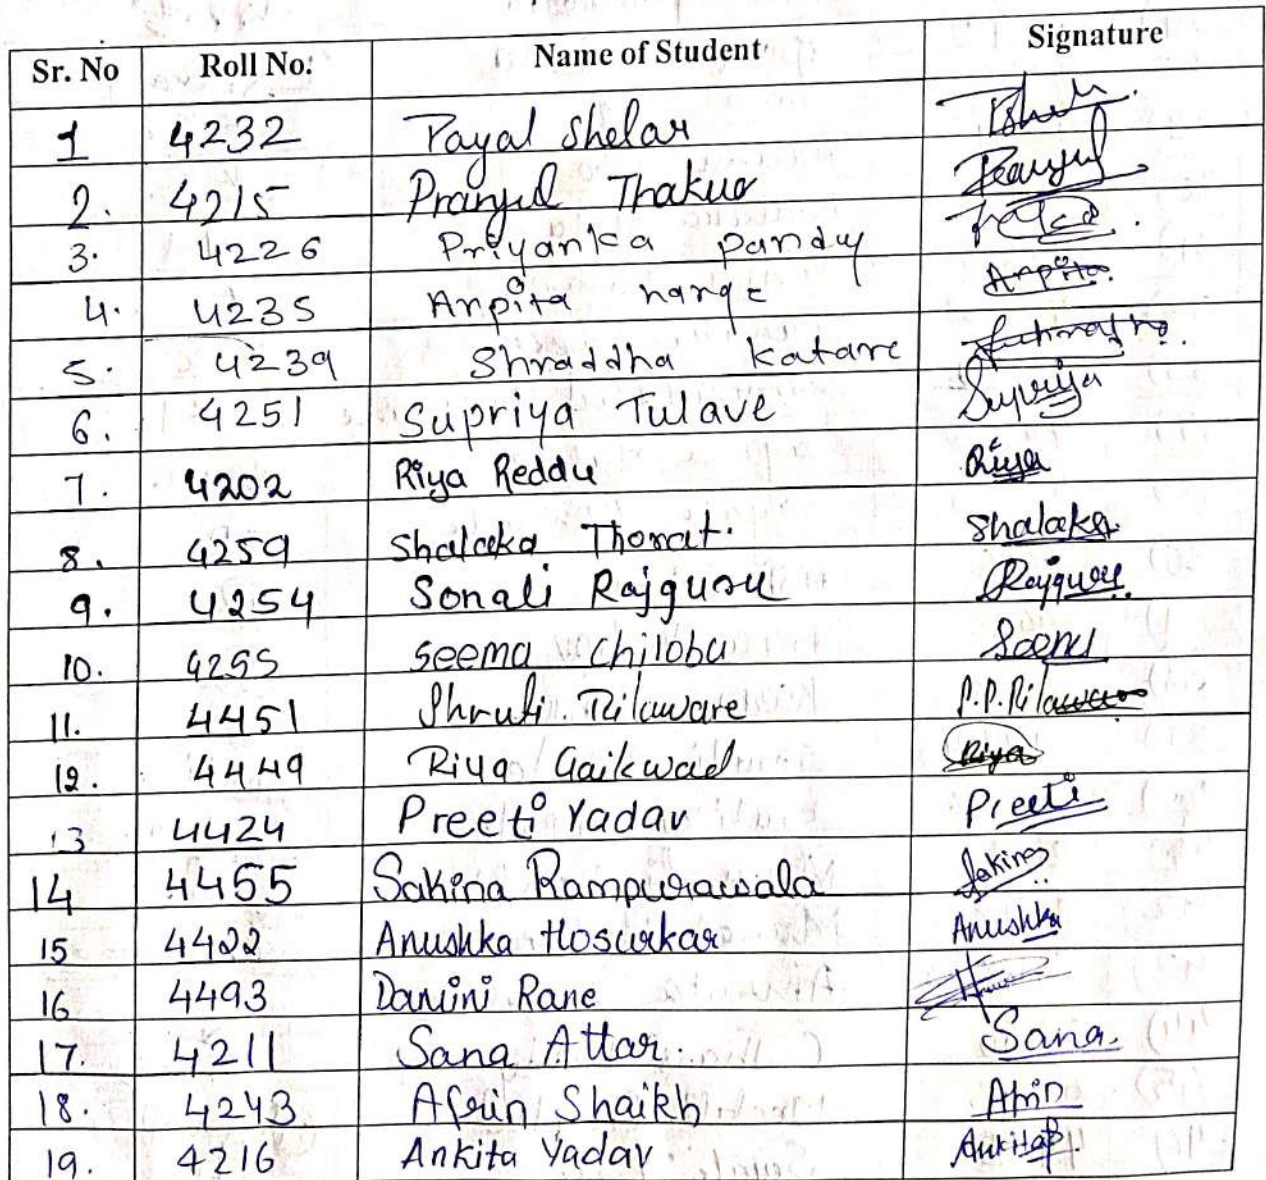 Sr. No Roll No. Name of Student Signature
1 4232 Payal Shelar
2. 4215 Pranjul Thakur Pranjul
3. 4226 Priyanka pandy
4. 4235 Arpita narge Arpita
5. 4239 Shraddha Katare
6. 4251 Supriya Tulave Supriya
7. 4202 Riya Reddy Riya
8. 4259 Shalaka Thorat. Shalaka
9. 4254 Sonali Rajguru Rajguru
10. 4255 Seema Chilobu Seema
11. 4451 Shruti Rilaware P.P.Rilaware
12. 4449 Riya Gaikwad Riya
13 4424 Preeti Yadav Preeti
14 4455 Sakina Rampurawala Sakina
15 4422 Anushka Hosurkar Anushka
16 4493 Damini Rane
17. 4211 Sana Attar. Sana.
18. 4243 Afrin Shaikh Afrin
19. 4216 Ankita Yadav Ankita